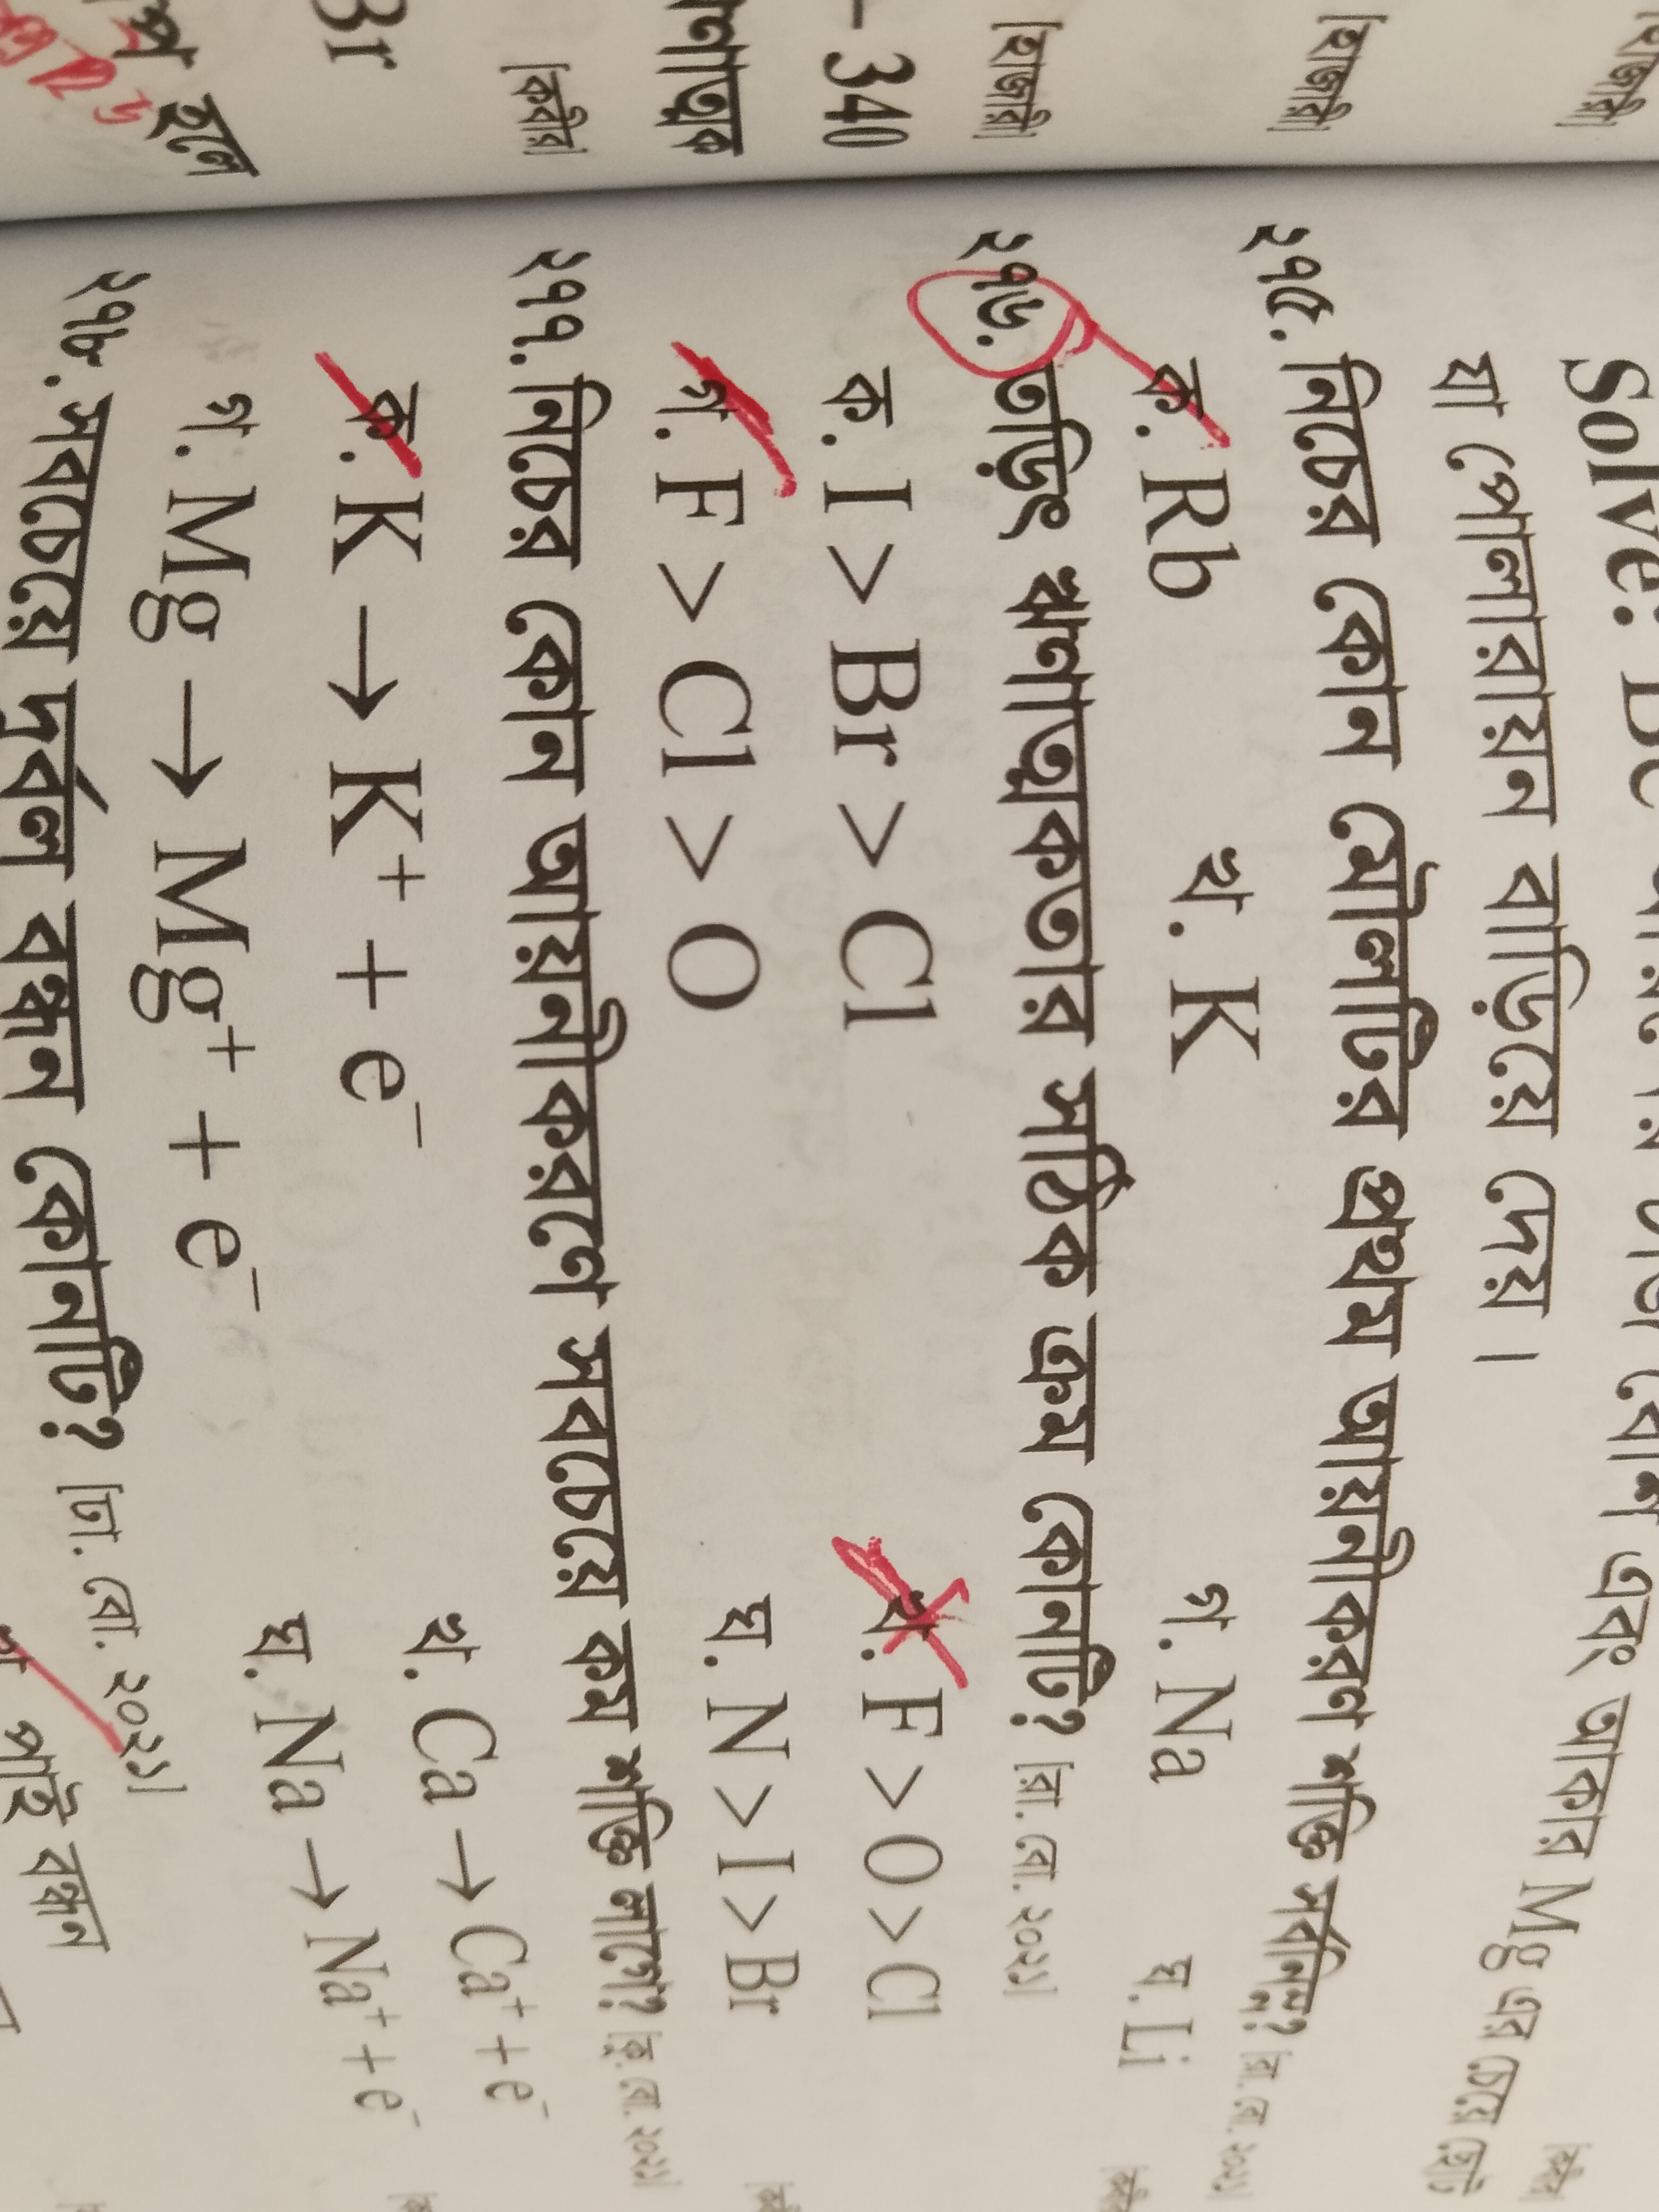 [হাজারি]
[হাজারি]
[হাজারি]
– 340
ণাত্মক
[কবীর]
Br
হলে
Solve: Be
এবং আকার Mg এর চেয়ে ছোট
যা পোলারায়ন বাড়িয়ে দেয়।
২৭৫. নিচের কোন মৌলটির প্রথম আয়নীকরণ শক্তি সর্বনিম্ন? [রা. বো. ২০২১]
ক. Rb খ. K গ. Na ঘ. Li
২৭৬. তড়িৎ ঋণাত্মকতার সঠিক ক্রম কোনটি? [রা. বো. ২০২১]
ক. I > Br > Cl খ. F > O > Cl
গ. F > Cl > O ঘ. N > I > Br
২৭৭. নিচের কোন আয়নীকরণে সবচেয়ে কম শক্তি লাগে? [কু. বো. ২০২১]
ক. K → K⁺ + e⁻ খ. Ca → Ca⁺ + e⁻
গ. Mg → Mg⁺ + e⁻ ঘ. Na → Na⁺ + e⁻
২৭৮. সবচেয়ে দুর্বল বন্ধন কোনটি? [ঢা. বো. ২০২১]
পাই বন্ধন